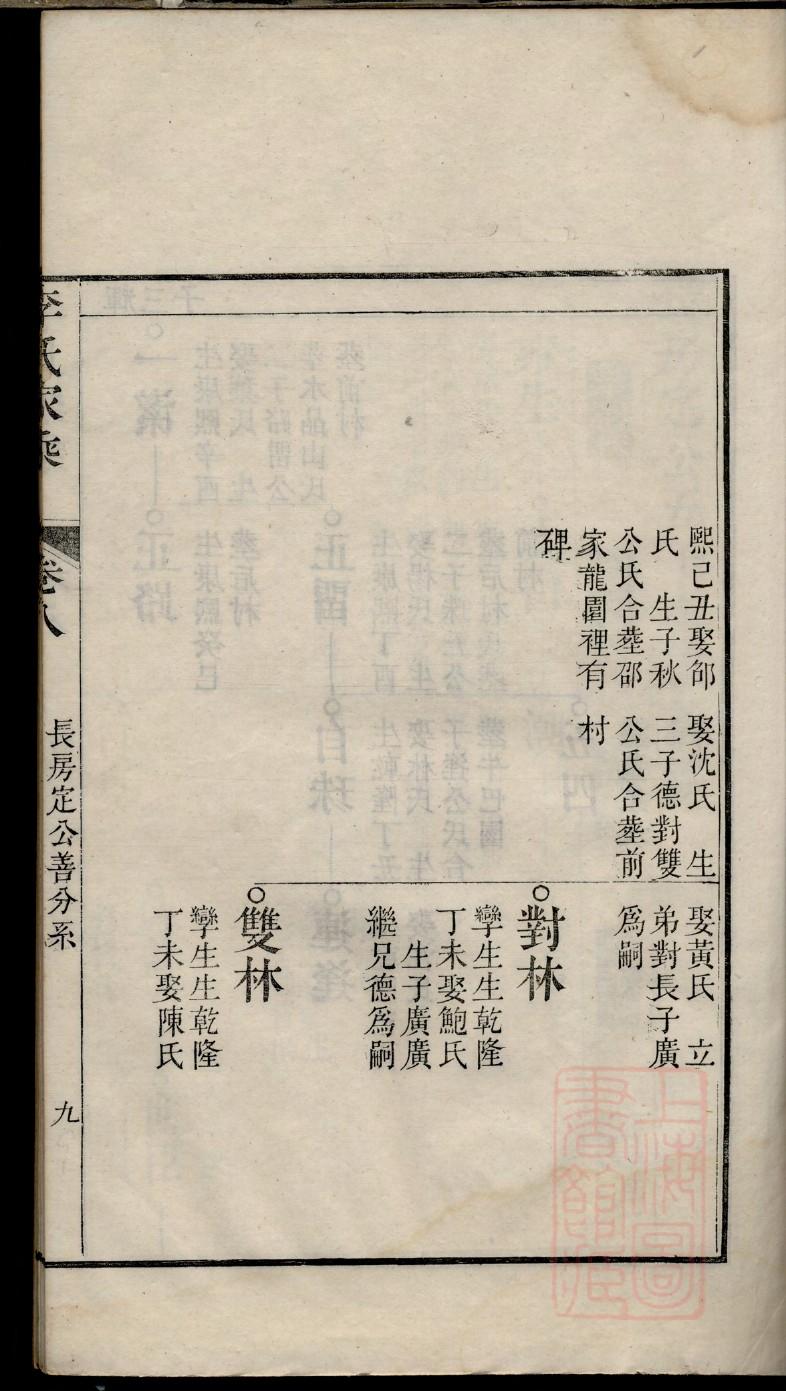 熙己丑娶邰
氏　生子秋
公氏合塟邵
家龍圍裡有
碑
娶沈氏　生
三子德對雙
公氏合塟前
村
娶黃氏　立
弟對長子廣
爲嗣
對林
孿生生乾隆
丁未娶鮑氏
　生子廣廣
繼兄德爲嗣
雙林
孿生生乾隆
丁未娶陳氏
李氏家乘
卷八
長房定公善分系
九
上海圖書館藏